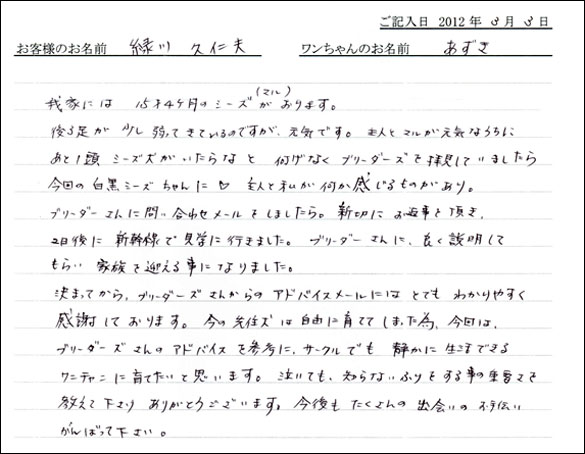 ご記入日 2012年 3月 3日
お客様のお名前 緑川 久仁夫 ワンちゃんのお名前 あずき
(マル)
我家には 15才4ケ月のシーズが おります。
後ろ足が 少し 弱ってきているのですが、元気です。 主人とマルが元気なうちに
あと1頭 シーズ犬がいたらなと 何げなく ブリーダーズを拝見していましたら
今回の白黒シーズちゃんに♡ 主人と私が何か感じるものがあり。
ブリーダーさんに問い合わせメールをしましたら。 親切に お返事を頂き、
2日後に 新幹線で見学に行きました。 ブリーダーさんに、良く説明して
もらい 家族を迎える事になりました。
決まってから、ブリーダーズさんからの アドバイスメールには とても わかりやすく
感謝しております。 今の先住ズは自由に育ててしまった為、今回は、
ブリーダーズさんのアドバイスを参考に、サークルでも 静かに生活できる
ワンチャンに育てたいと思います。 泣いても、知らないふりをする事の重要さを
教えて下さり ありがとうございます。 今後も たくさんの 出会いの お手伝い
がんばって下さい。